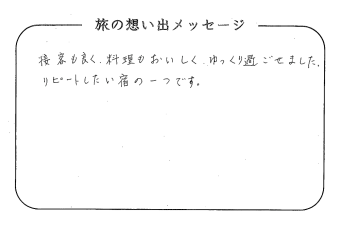 旅の想い出メッセージ
接客も良く、料理もおいしく、ゆっくり過ごせました。
リピートしたい宿の一つです。